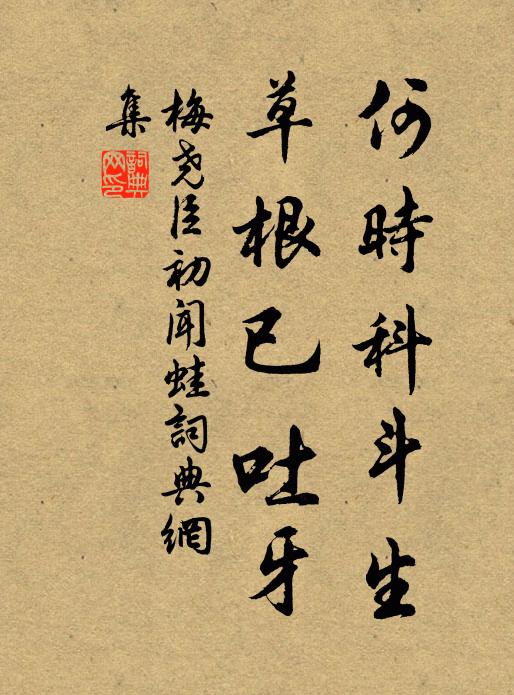 何時科斗生
草根已吐牙
梅尧臣初聞蛙詞典網
集
詞典网印